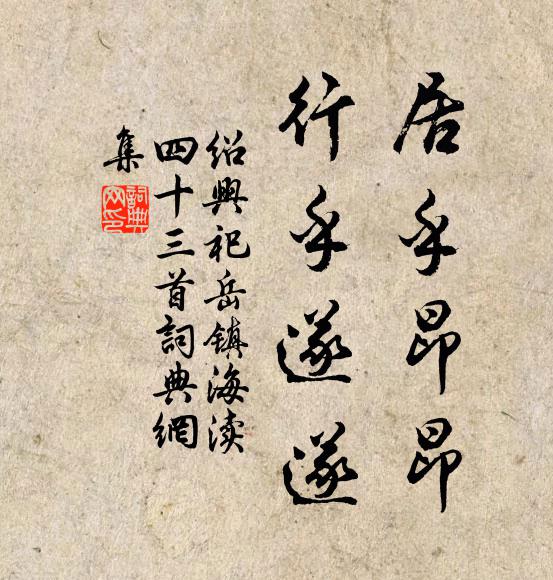 居乎昂昂
行乎遂遂
绍興祀岳镇海渎
四十三首詞典網
集
詞典
网印